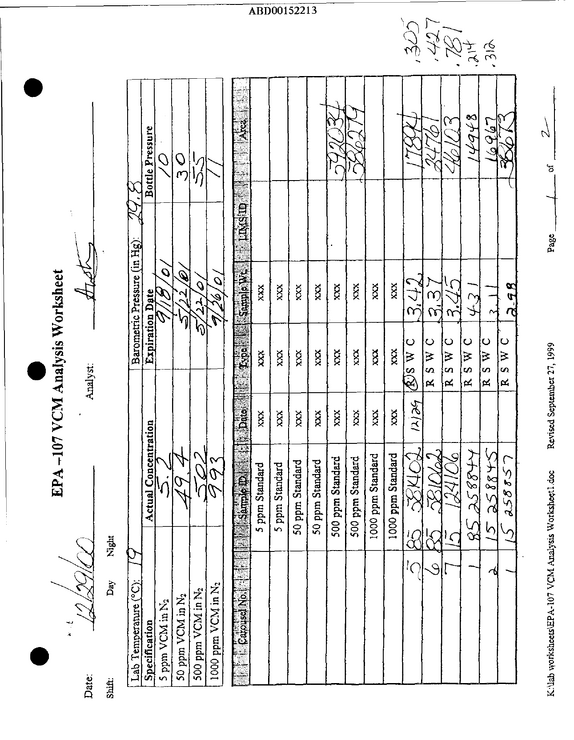 ABD00152213
EPA –107 VCM Analysis Worksheet
Date: 12/29/00 Analyst:
Shift: Day Night
Lab Temperature (°C): 19 Barometric Pressure (in Hg): 29.8
Specification Actual Concentration Expiration Date Bottle Pressure
5 ppm VCM in N2 5.2 9/18/01 10
50 ppm VCM in N2 49.4 5/22/01 30
500 ppm VCM in N2 502 5/22/01 55
1000 ppm VCM in N2 993 9/26/01 11
Carousel No. Sample ID Date Type Sample Wt. LIMS ID Area
5 ppm Standard xxx xxx xxx
5 ppm Standard xxx xxx xxx
50 ppm Standard xxx xxx xxx
50 ppm Standard xxx xxx xxx
500 ppm Standard xxx xxx xxx 592034
500 ppm Standard xxx xxx xxx 586279
1000 ppm Standard xxx xxx xxx
1000 ppm Standard xxx xxx xxx
5 85 581402 12/29 R S W C 3.42 17894 .305
6 85 581062 R S W C 3.37 24761 .427
7 15 124106 R S W C 3.45 46103 .781
1 85 258844 R S W C 4.31 14948 .214
2 15 258845 R S W C 3.11 16967 .312
1 15 258857 R S W C 2.98
K:\lab worksheets\EPA-107 VCM Analysis Worksheet1.doc Revised September 27, 1999 Page 1 of 2